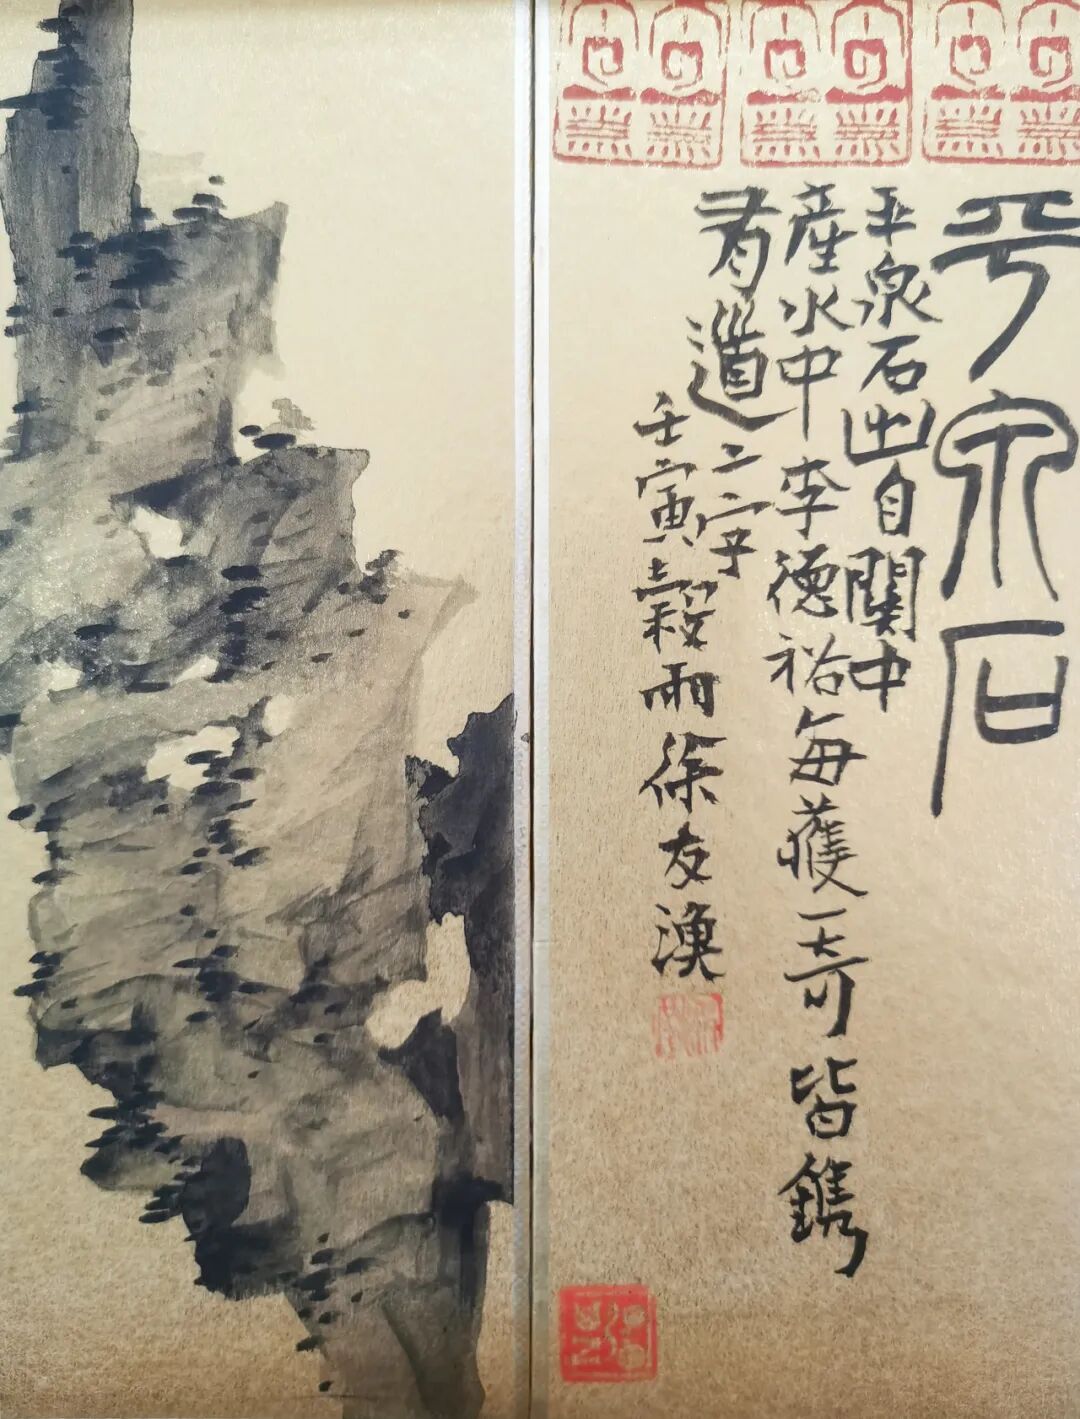 平泉石
平泉石出自關中
産水中李德裕每獲一奇皆鐫
有道二字
壬寅穀雨徐友漁